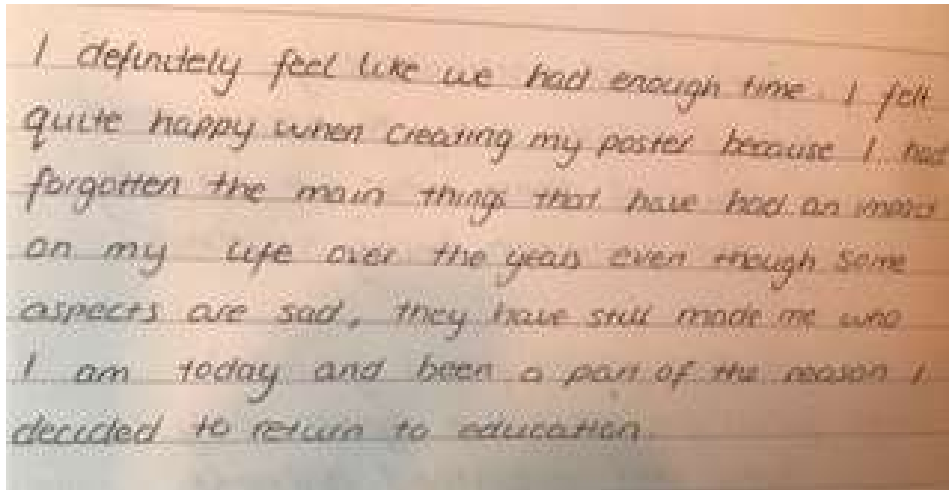 I definitely feel like we had enough time. I felt
quite happy when creating my poster because I had
forgotten the main things that have had an impact
on my life over the years even though some
aspects are sad, they have still made me who
I am today and been a part of the reason I
decided to return to education.